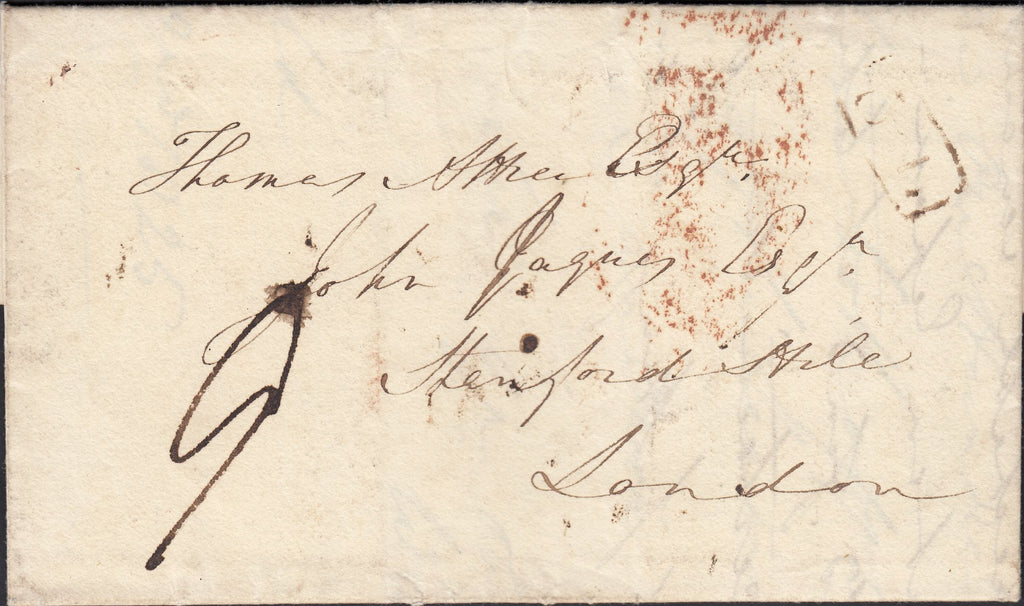 Thomas Attree Esqr.
John Jaques Esqr.
Stamford Hill
London
9